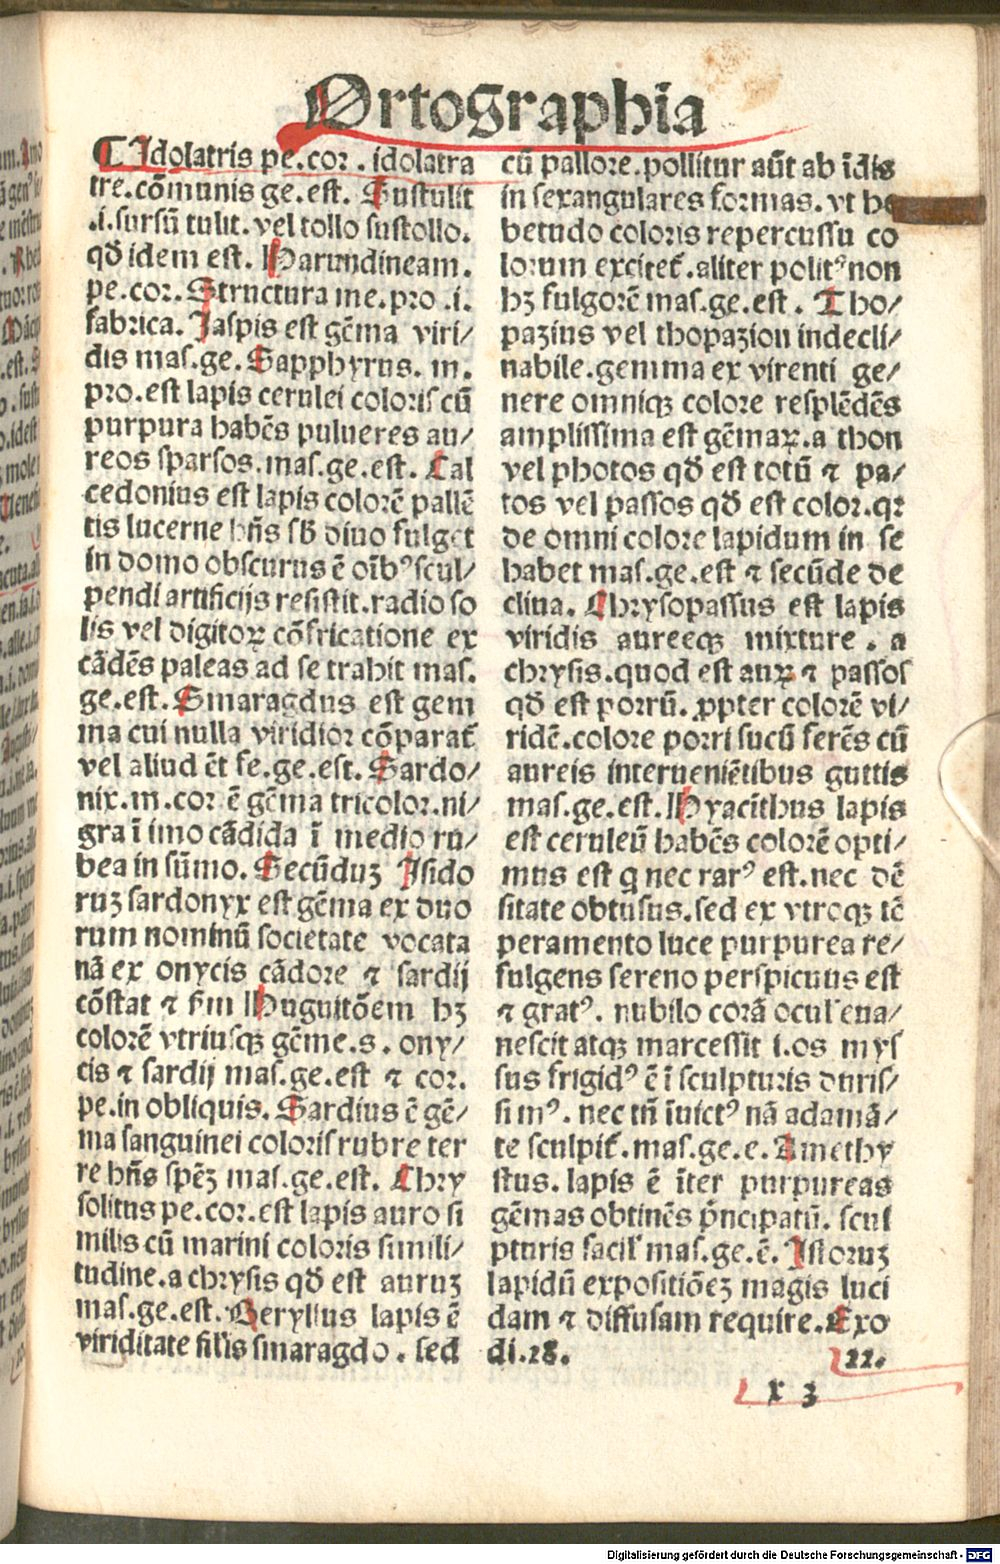 Ortographia
¶ Idolatris pe.cor. idolatra
tre.cōmunis ge.est. Sustulit
.i.sursū tulit. vel tollo sustollo.
qd̄ idem est. Harundineam.
pe.cor. Structura me.pro .i.
fabrica. Jaspis est gēma viri/
dis mas.ge. Sapphyrus. m.
pro.est lapis cerulei coloris cū
purpura habēs pulueres au/
reos sparsos.mas.ge.est. Cal
cedonius est lapis colorē pallē
tis lucerne hn̄s sb̄ diuo fulget
in domo obscurus ē oīb⁹ scul/
pendi artificijs resistit.radio so
lis vel digitoꝝ cōfricatione ex
cādēs paleas ad se trahit mas.
ge.est. Smaragdus est gem
ma cui nulla viridior cōparat᷑
vel aliud ēt fe.ge.est. Sardo/
nix.m.cor ē gēma tricolor.ni/
gra ī imo cādida ī medio ru/
bea in sūmo. Secūduꝫ Isido
ruꝫ sardonyx est gēma ex duo
rum nominū societate vocata
nā ex onycis cādore ⁊ sardij
cōstat ⁊ fm̄ Huguitōem hꝫ
colorē vtriusqꝫ gēme.s. ony/
cis ⁊ sardij mas.ge.est ⁊ cor.
pe.in obliquis. Sardius ē gē/
ma sanguinei coloris rubre ter
re hn̄s spēꝫ mas.ge.est. Chry
solitus pe.cor.est lapis auro si
milis cū marini coloris simili/
tudine.a chrysis qd̄ est auruꝫ
mas.ge.est. Beryllus lapis ē
viriditate sil̄is smaragdo. sed
cū pallore.pollitur aūt ab īdis
in sexangulares formas. vt he
betudo coloris repercussu co
lorum excitet᷑.aliter polit⁹ non
hꝫ fulgorē mas.ge.est. Tho/
pazius vel thopazion indecli/
nabile.gemma ex virenti ge/
nere omniqꝫ colore resplēdēs
amplissima est gēmaꝝ.a thon
vel photos qd̄ est totū ⁊ pa/
tos vel passos qd̄ est color.qꝛ
de omni colore lapidum in se
habet mas.ge.est ⁊ secūde de
clina. Chrysopassus est lapis
viridis aureeqꝫ mixture . a
chrysis.quod est auꝝ ⁊ passos
qd̄ est porrū. ꝓpter colorē vi/
ridē.colore porri sucū ferēs cū
aureis interuenīētibus guttis
mas.ge.est. Hyacīthus lapis
est ceruleū habēs colorē opti/
mus est q nec rar⁹ est.nec dē
sitate obtusus.sed ex vtroqꝫ tē
peramento luce purpurea re/
fulgens sereno perspicuus est
⁊ grat⁹. nubilo corā ocul' eua/
nescit atqꝫ marcessit i.os mis
sus frigid⁹ ē ī sculpturis duris/
sim⁹. nec tn̄ īuict⁹ nā adamā/
te sculpit᷑.mas.ge.e. Amethy
stus. lapis ē īter purpureas
gēmas obtinēs pn̄cipatū. scul
pturis facil' mas.ge.ē. Istoruꝫ
lapidū expositiōeꝫ magis luci
dam ⁊ diffusam require. Exo
di.28.
22.
x 3
Digitalisierung gefördert durch die Deutsche Forschungsgemeinschaft - DFG